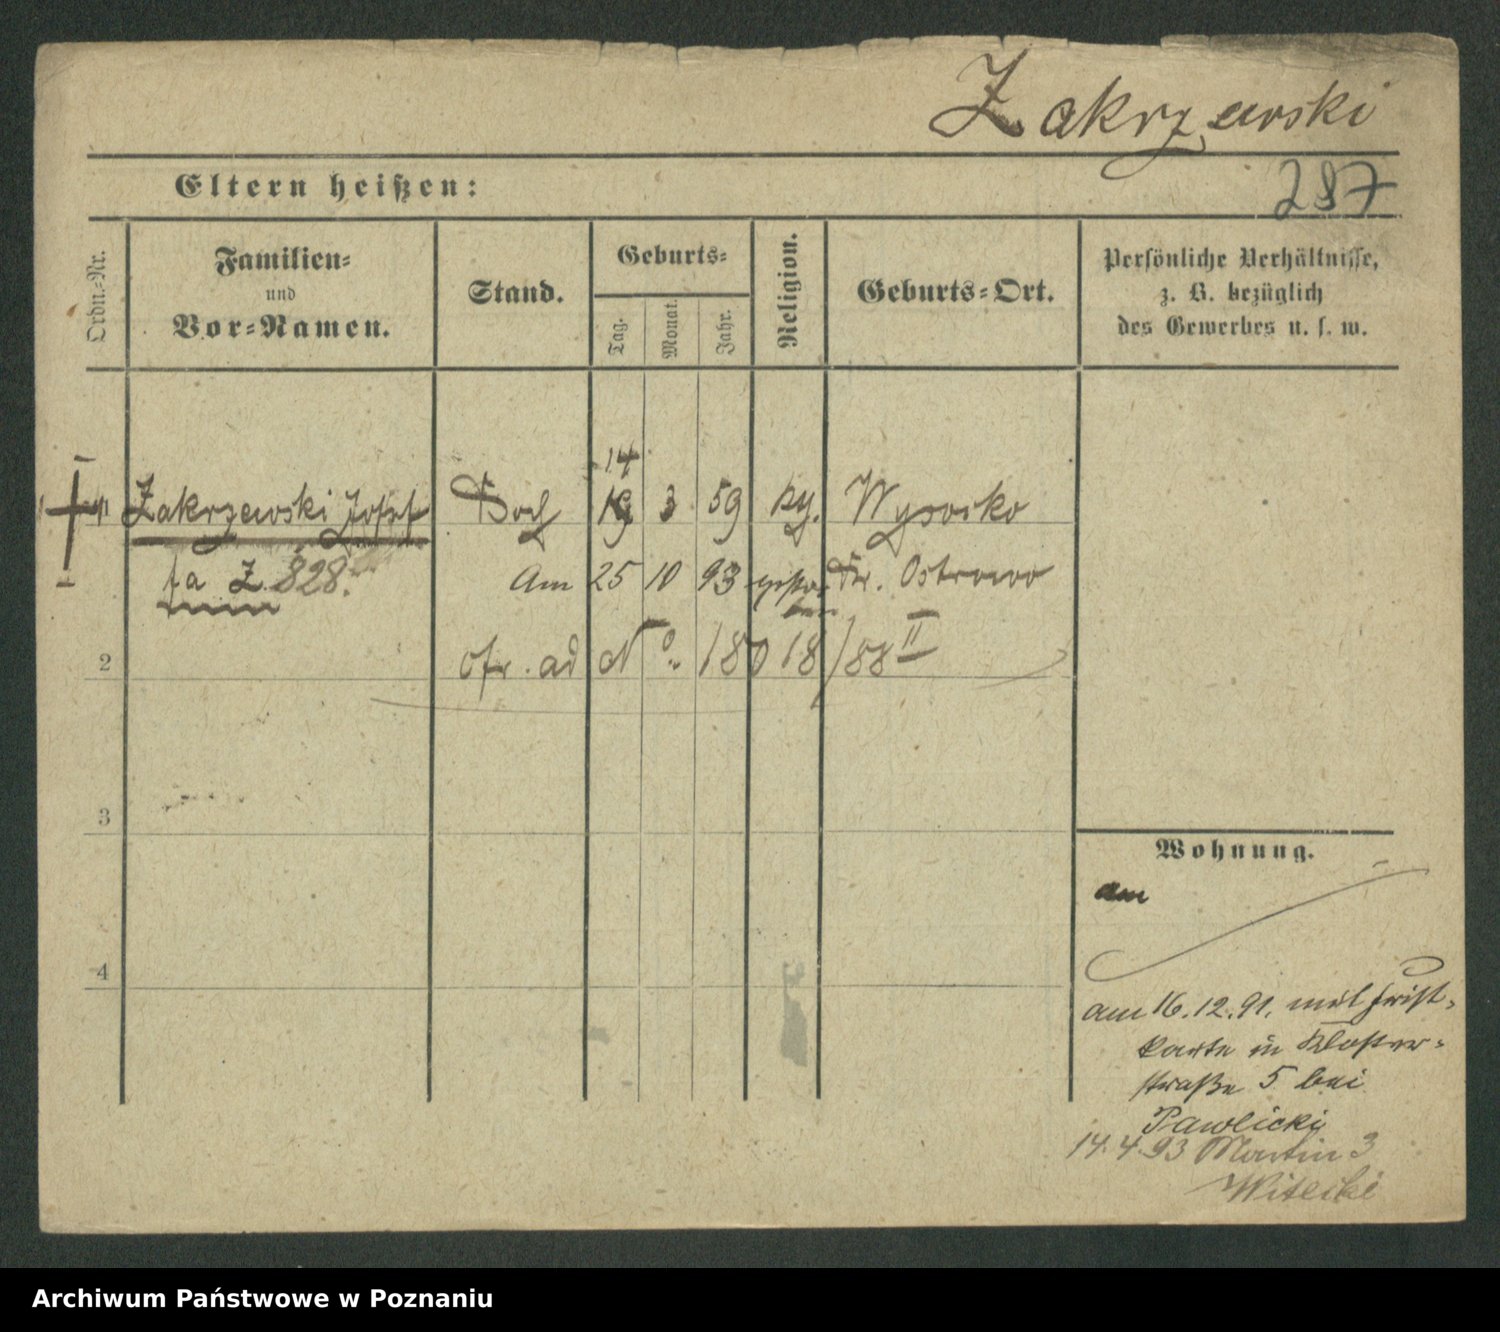 Zakrzewski
287
Eltern heißen:
Ordn.-Nr.
Familien-
und
Vor-Namen.
Stand.
Geburts-
Tag.
Monat.
Jahr.
Religion.
Geburts-Ort.
Persönliche Verhältnisse,
z. B. bezüglich
des Gewerbes u. s. w.
14
Zakrzewski Josef 3 59 Wysocko
Z 828. Am 25 10 93 gestor Kr. Ostrowo
ben
2 cfr. ad No. 180 18/88 II
3
4
Wohnung.
am
am 16.12.91. mit Frist-
karte in Kloster-
straße 5 bei
Pawlicki
14.4.93 Martin 3
Witecki
Archiwum Państwowe w Poznaniu